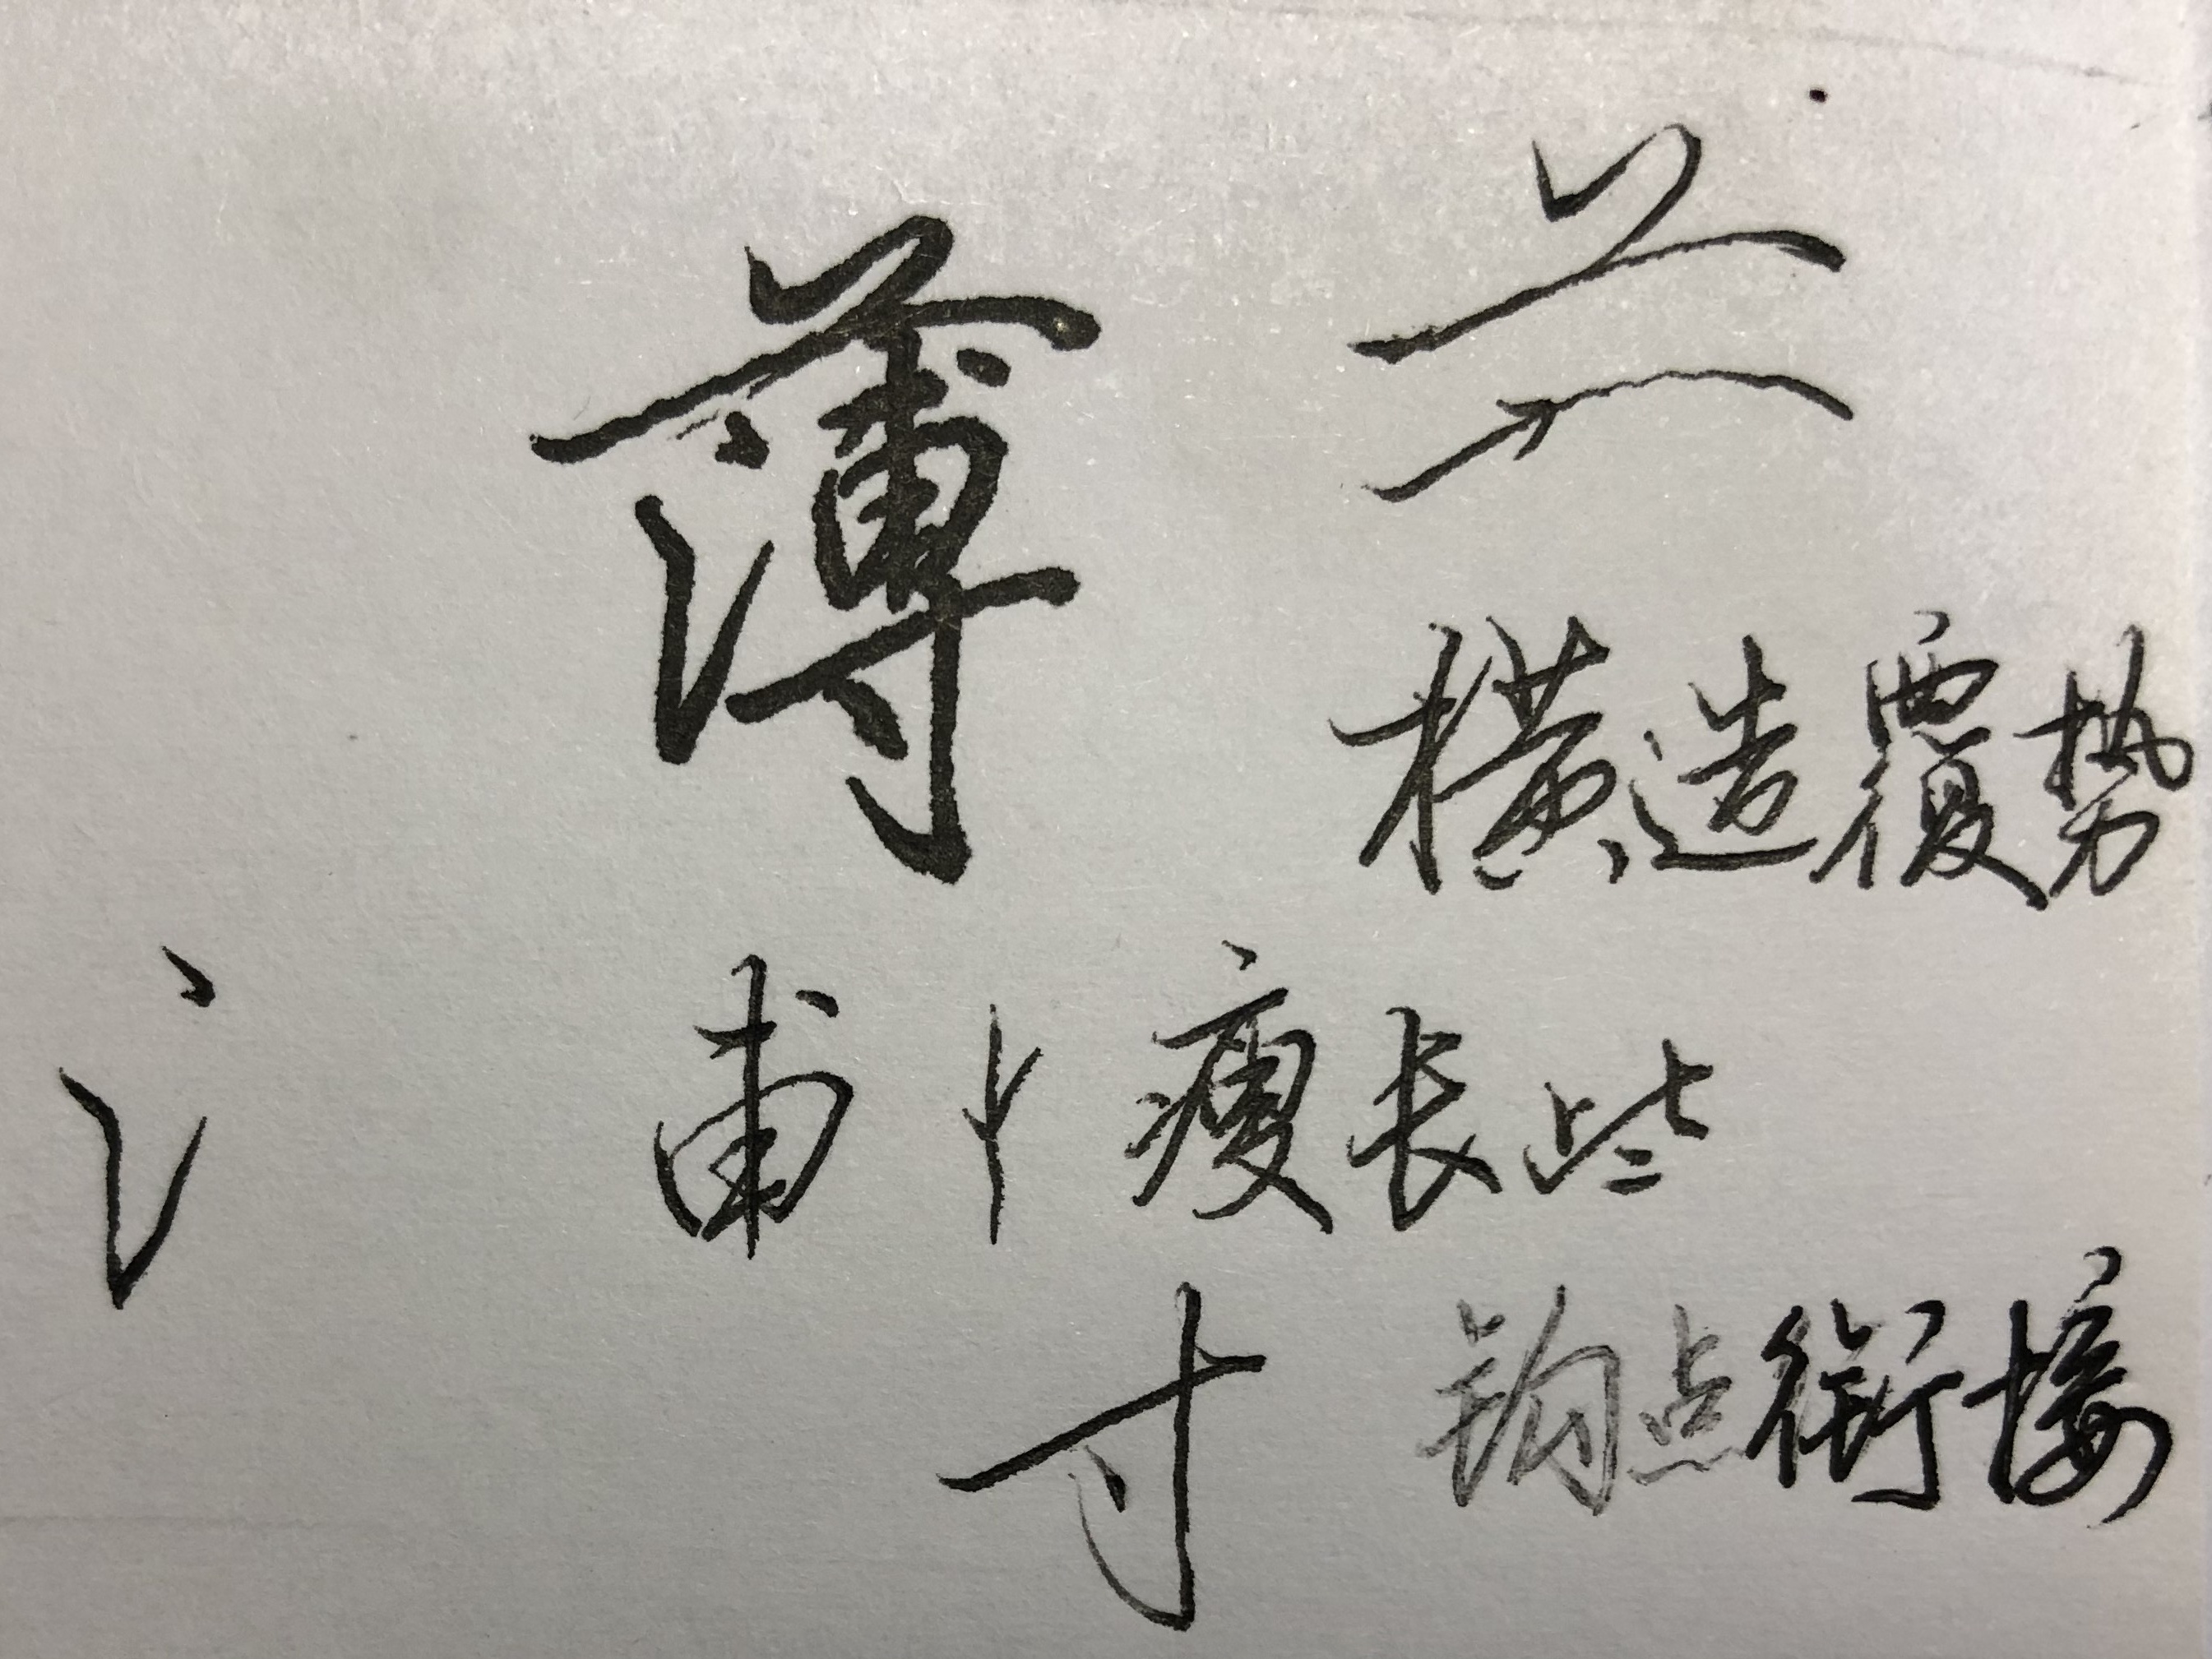 薄
横造覆势
氵 甫 瘦长些
寸 钩点衔接